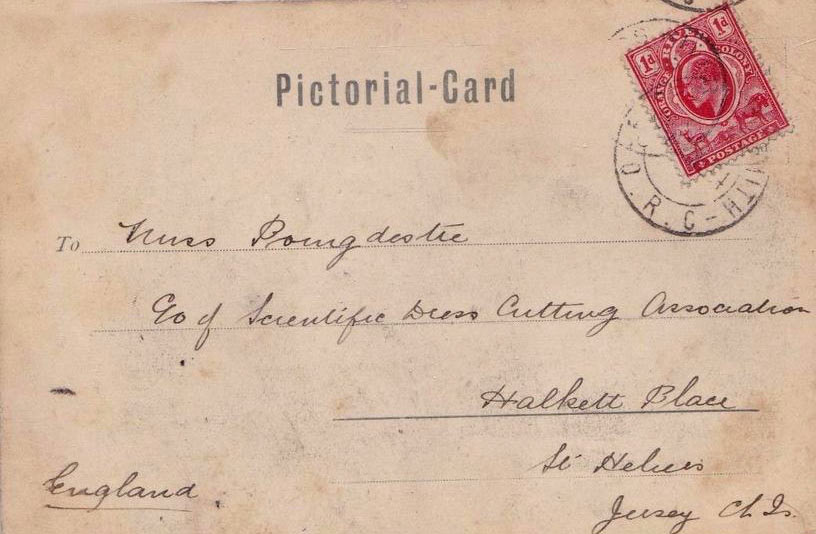 Pictorial-Card
1d 1d
ORANGE RIVER COLONY
POSTAGE
O.R.C-
To Miss Poingdestre
C/o of Scientific Dress Cutting Association
Halkett Place
St Heliers
Jersey Ch Is.
England